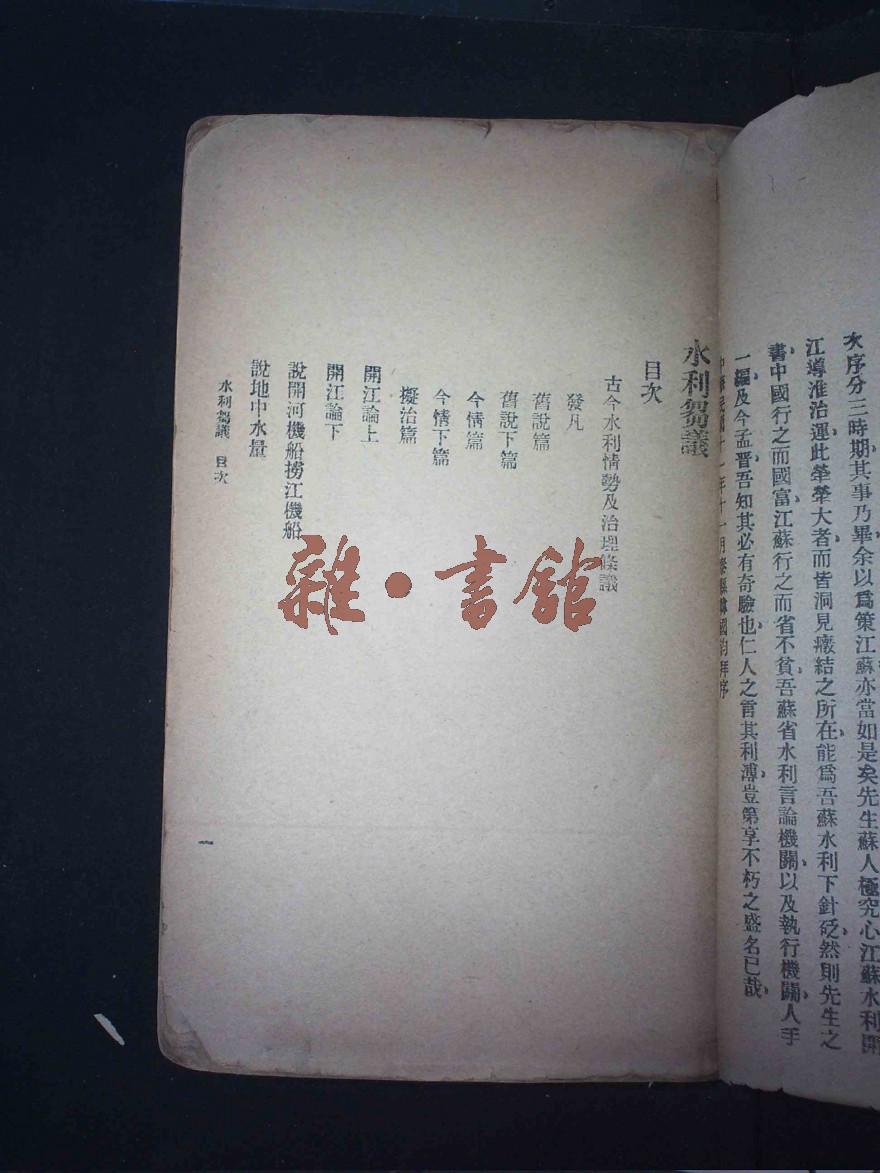 次序分三時期其事乃畢余以爲策江蘇亦當如是矣先生蘇人極究心江蘇水利開
江導淮治運此犖犖大者而皆洞見癥結之所在能爲吾蘇水利下針砭然則先生之
書中國行之而國富江蘇行之而省不貧吾蘇省水利言論機關以及執行機關人手
一編及今孟晉吾知其必有奇驗也仁人之言其利溥豈第享不朽之盛名已哉
中華民國十一年十一月泰縣韓國鈞拜序
水利芻議
目次
古今水利情勢及治理條議
發凡
舊說篇
舊說下篇
今情篇
今情下篇
擬治篇
開江論上
開江論下
說開河機船撈江機船
說地中水量
水利芻議 目次
一
雜·書館